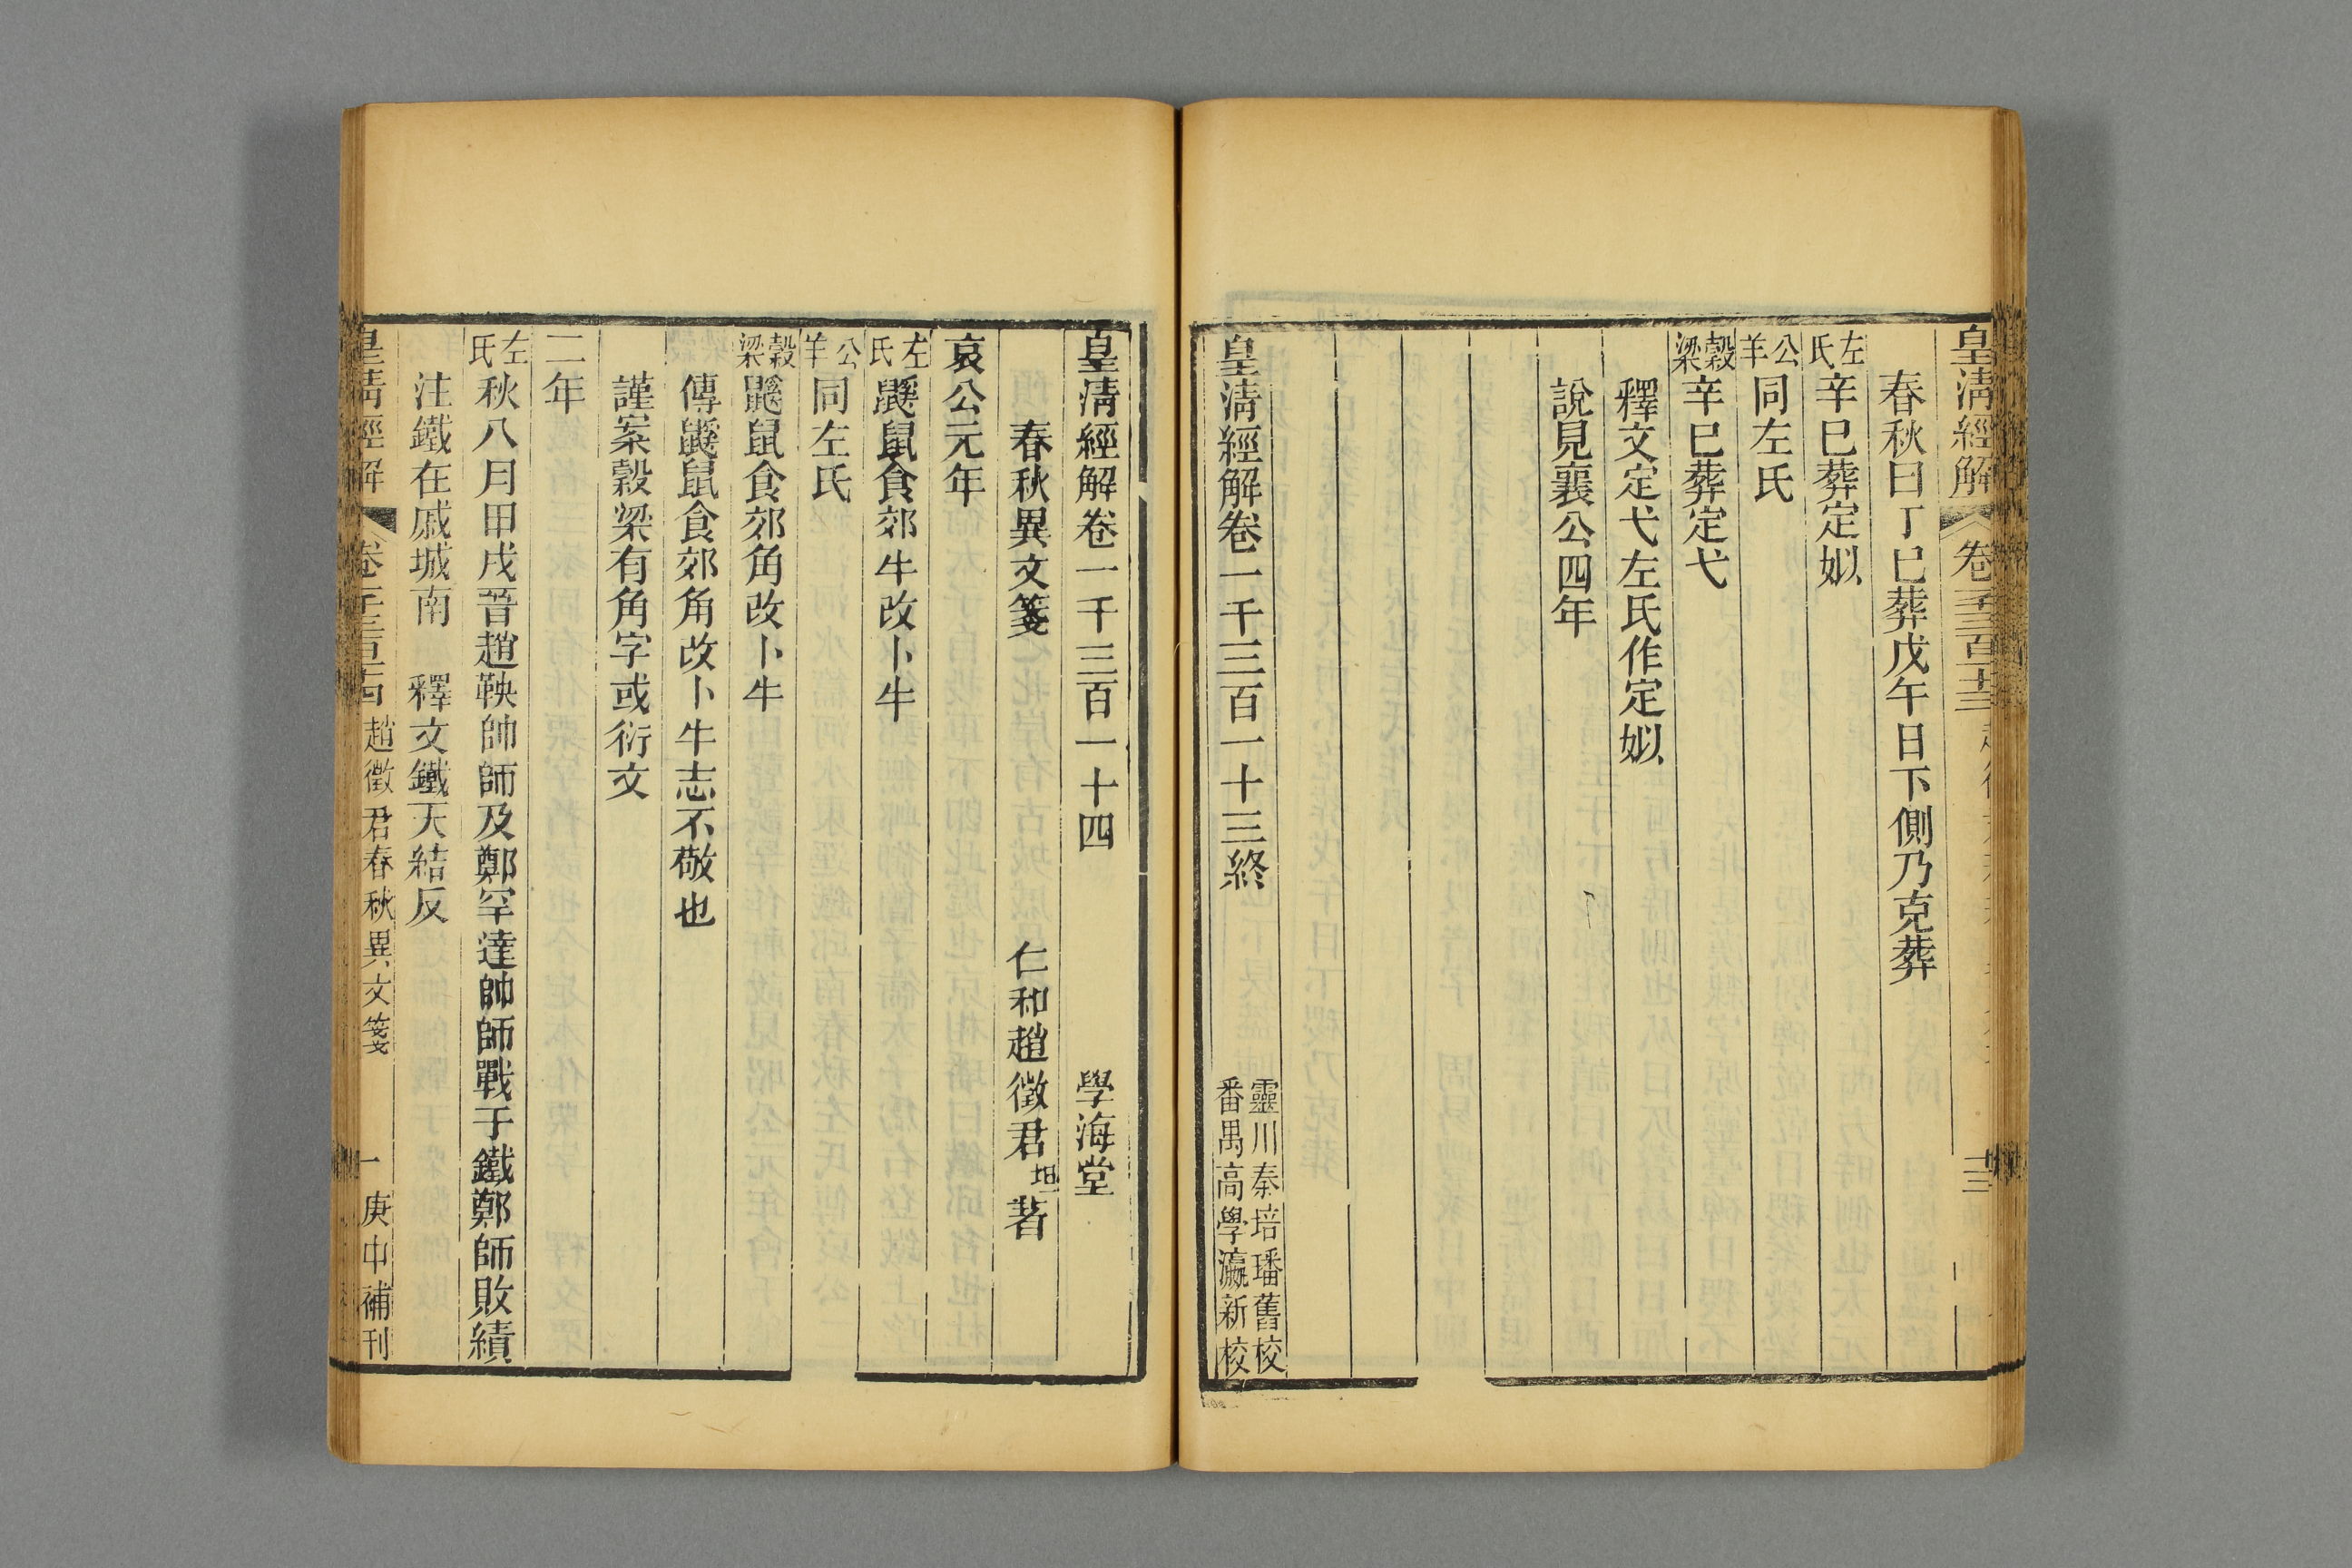 皇清經解 卷一千三百十三
十三
春秋曰丁巳葬戊午日下側乃克葬
左氏辛巳葬定姒
公羊同左氏
穀梁辛巳葬定弋
釋文定弋左氏作定姒
說見襄公四年
皇清經解卷一千三百一十三終
靈川秦培璠舊校
番禺高學瀛新校
皇清經解卷一千三百一十四 學海堂
春秋異文箋 仁和趙徵君坦著
哀公元年
左氏鼷鼠食郊牛改卜牛
公羊同左氏
穀梁鼷鼠食郊角改卜牛
傳鼷鼠食郊角改卜牛志不敬也
謹案穀梁有角字或衍文
二年
左氏秋八月甲戌晉趙鞅帥師及鄭罕達帥師戰于鐵鄭師敗績
注鐵在戚城南 釋文鐵天結反
皇清經解 卷一千三百十四 趙徵君春秋異文箋 一 庚申補刊